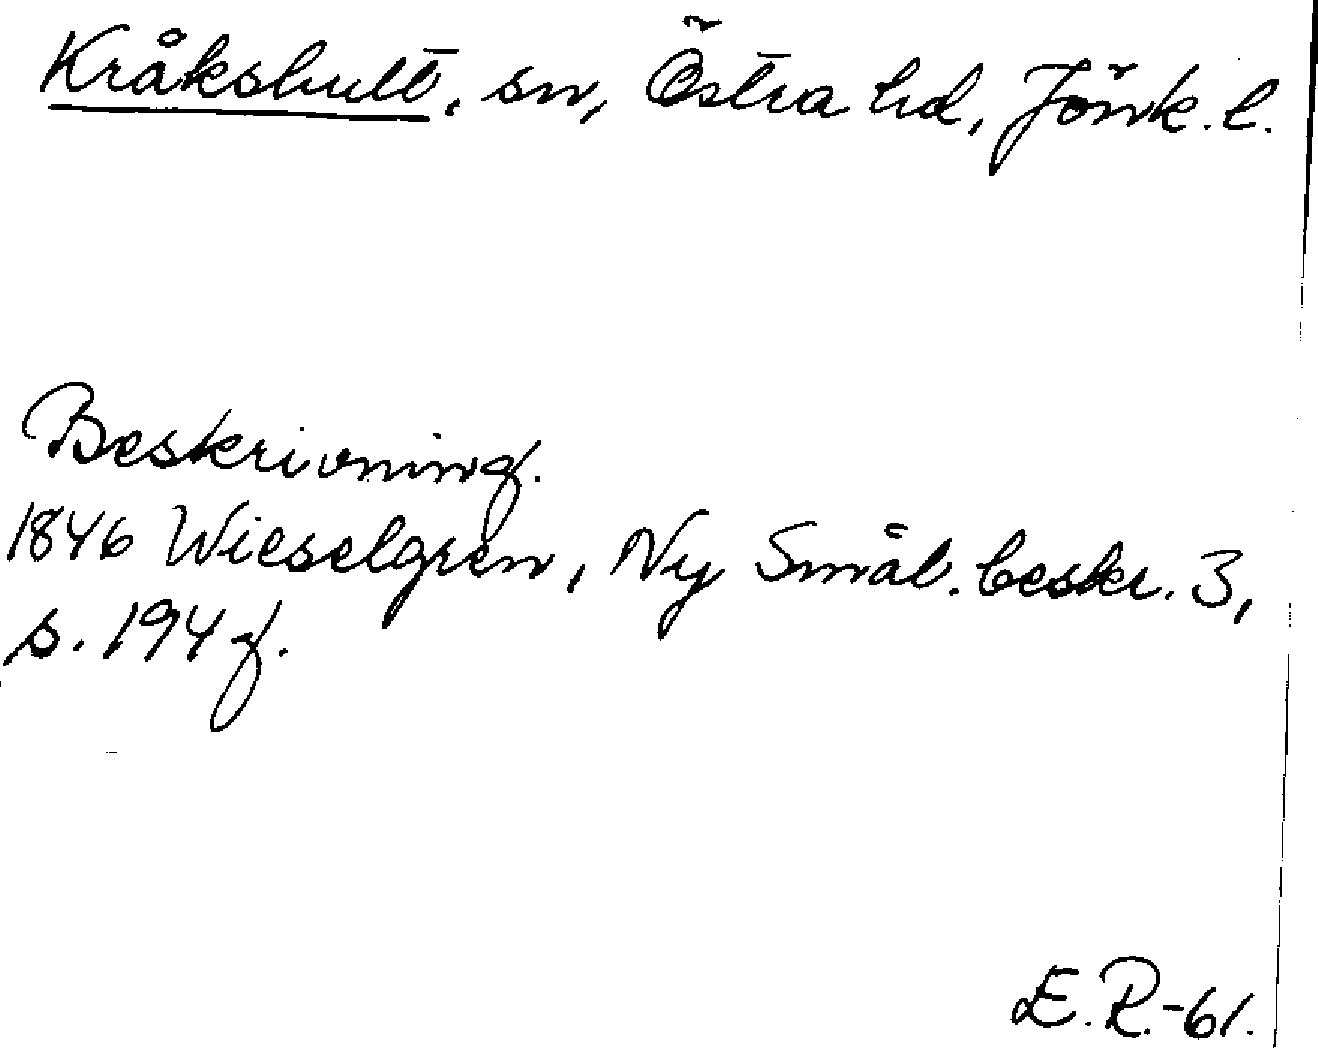 Kråkshult, sn, Östra hd, Jönk. l.
Beskrivning.
1846 Wieselgren, Ny Smål. beskr. 3,
s. 194 f.
E.R.-61.